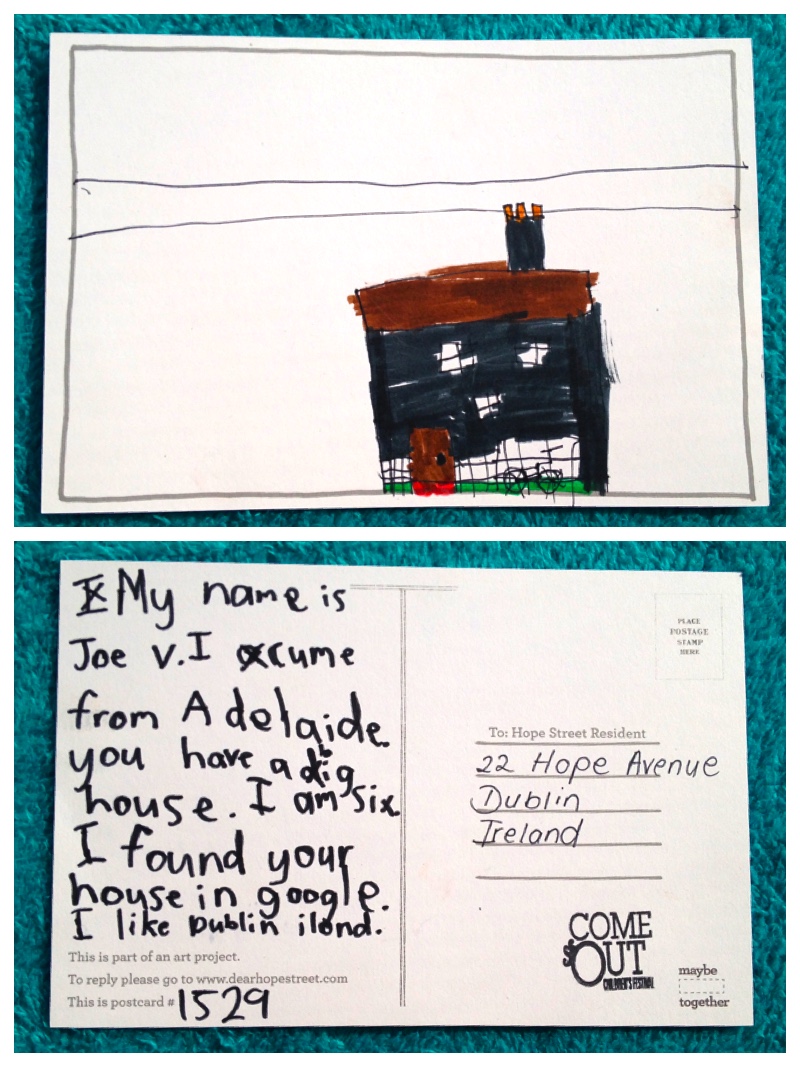 My name is
Joe V. I cume
from Adelaide
you have a big
house. I am six
I found your
house in google.
I like Dublin ilond.
This is part of an art project.
To reply please go to www.dearhopestreet.com
This is postcard # 1529
PLACE
POSTAGE
STAMP
HERE
To: Hope Street Resident
22 Hope Avenue
Dublin
Ireland
COME
OUT
CHILDREN'S FESTIVAL
maybe
together